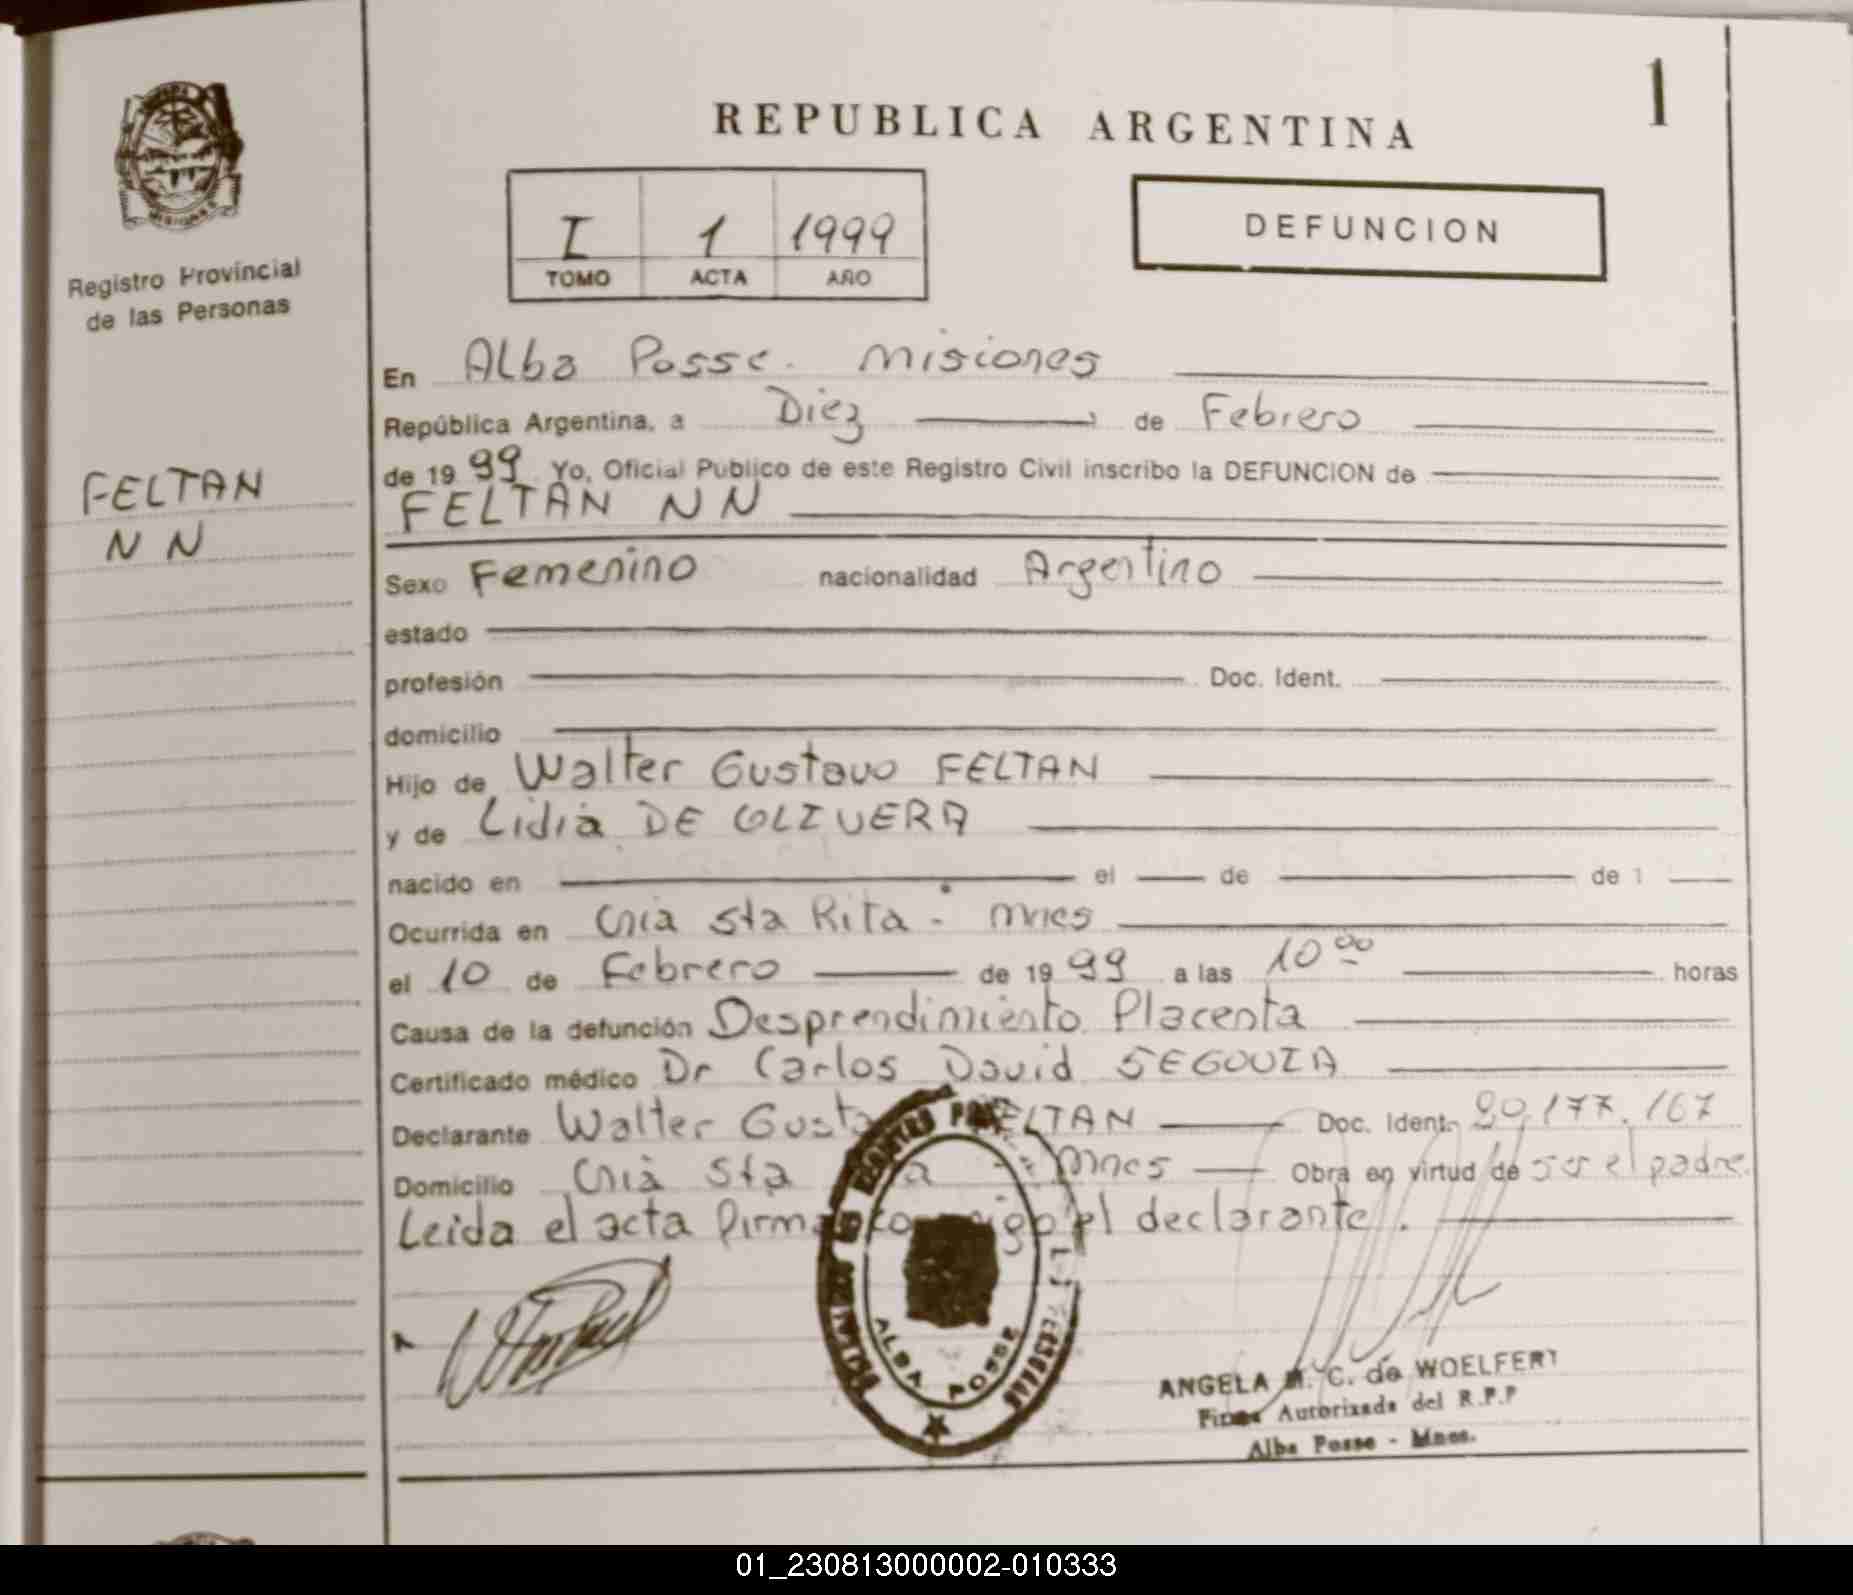 1
REPUBLICA ARGENTINA
I 1 1999
TOMO ACTA AÑO
DEFUNCION
MISIONES
Registro Provincial
de las Personas
FELTAN
N N
En Alba Posse. Misiones
República Argentina, a Diez de Febrero
de 1999 Yo, Oficial Publico de este Registro Civil inscribo la DEFUNCION de
FELTAN N N
Sexo Femenino nacionalidad Argentino
estado
profesión Doc. Ident.
domicilio
Hijo de Walter Gustavo FELTAN
y de Lidia DE OLIVERA
nacido en el de de 1
Ocurrida en Cnia Sta Rita - Mnes
el 10 de Febrero de 1999 a las 10 00 horas
Causa de la defunción Desprendimiento Placenta
Certificado médico Dr Carlos David SEGOVIA
Declarante Walter FELTAN Doc. Ident. 20.177.167
Domicilio Cnia Sta Mnes Obra en virtud de ser el padre.
Leida el acta el declarante.
ALBA POSSE
ANGELA M. C. de WOELFERT
Firma Autorizada del R.P.P
Alba Posse - Mnes.
01_230813000002-010333